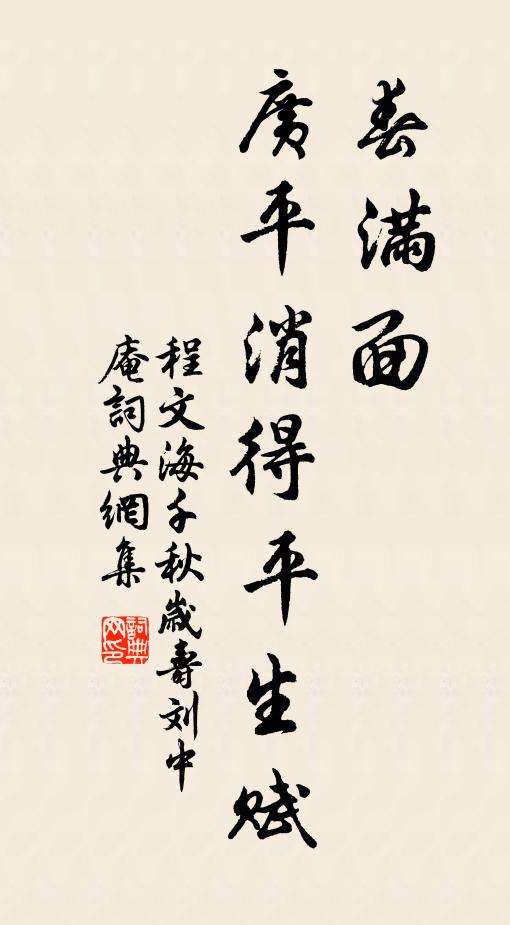 春滿面
廣平消得平生賦
程文海千秋歲壽刘中
庵詞典網集
詞典
网印